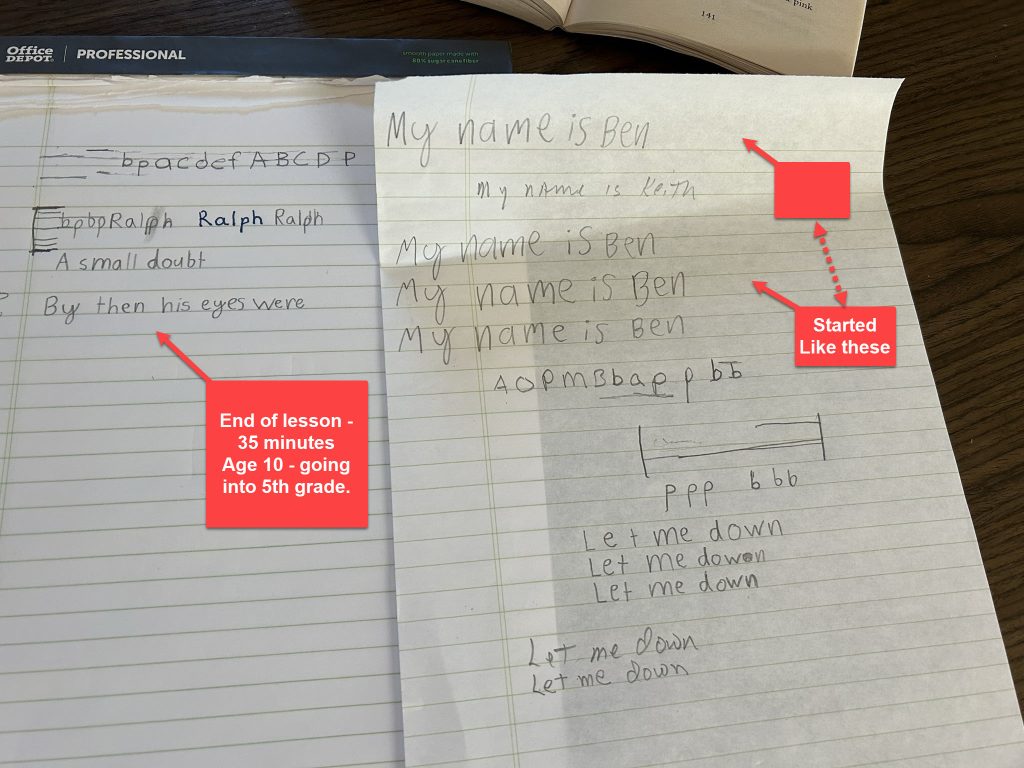 141
pink
Office DEPOT. PROFESSIONAL
smooth paper made with
80% sugar cane fiber
bpacdefABCDP
bpbpRalph Ralph Ralph
A small doubt
? By then his eyes were
End of lesson -
35 minutes
Age 10 - going
into 5th grade.
My name is Ben
My nAme is Keith
My name is Ben
My name is Ben
My name is Ben
Started
Like these
AOPMBbap p bb
ppp bbb
Let me down
Let me dowon
Let me down
Let me down
Let me down